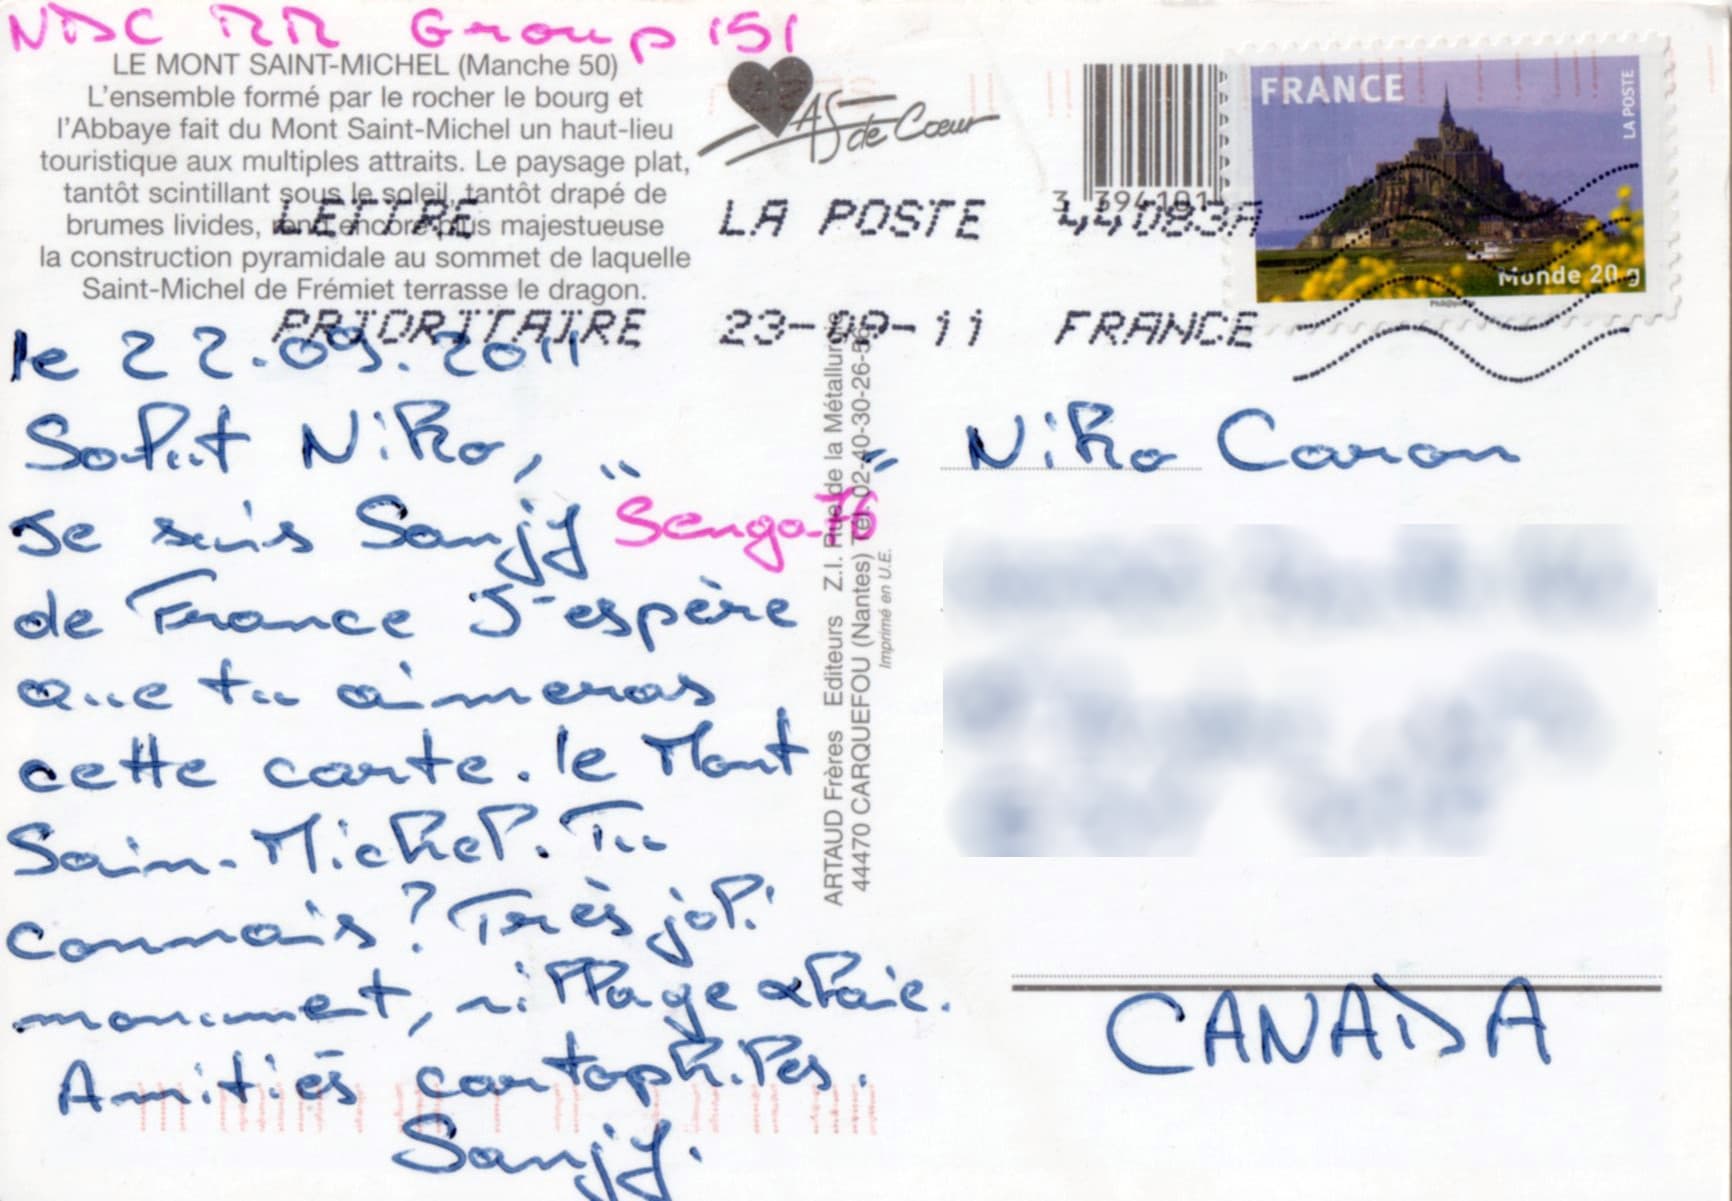 NDC RR Group 151
LE MONT SAINT-MICHEL (Manche 50)
L'ensemble formé par le rocher le bourg et
l'Abbaye fait du Mont Saint-Michel un haut-lieu
touristique aux multiples attraits. Le paysage plat,
tantôt scintillant sous le soleil, tantôt drapé de
brumes livides, rend encore plus majestueuse
la construction pyramidale au sommet de laquelle
Saint-Michel de Frémiet terrasse le dragon.
AS de Cœur
3 394101
FRANCE
LA POSTE
Monde 20 g
LETTRE LA POSTE 44083A
PRIORITAIRE 23-09-11 FRANCE
le 22.09.2011
Salut Niko,
Je suis Sanjy "Senga75"
de France J'espère
que tu aimeras
cette carte. le Mont
Sain-Michel. Tu
connais ? Très joli
monument, village & baie.
Amitiés cartophiles.
Sanjy.
ARTAUD Frères Editeurs Z.I. Rue de la Métallurgie
44470 CARQUEFOU (Nantes) Tél. 02-40-30-26-56
Imprimé en U.E.
Niko Caron
CANADA